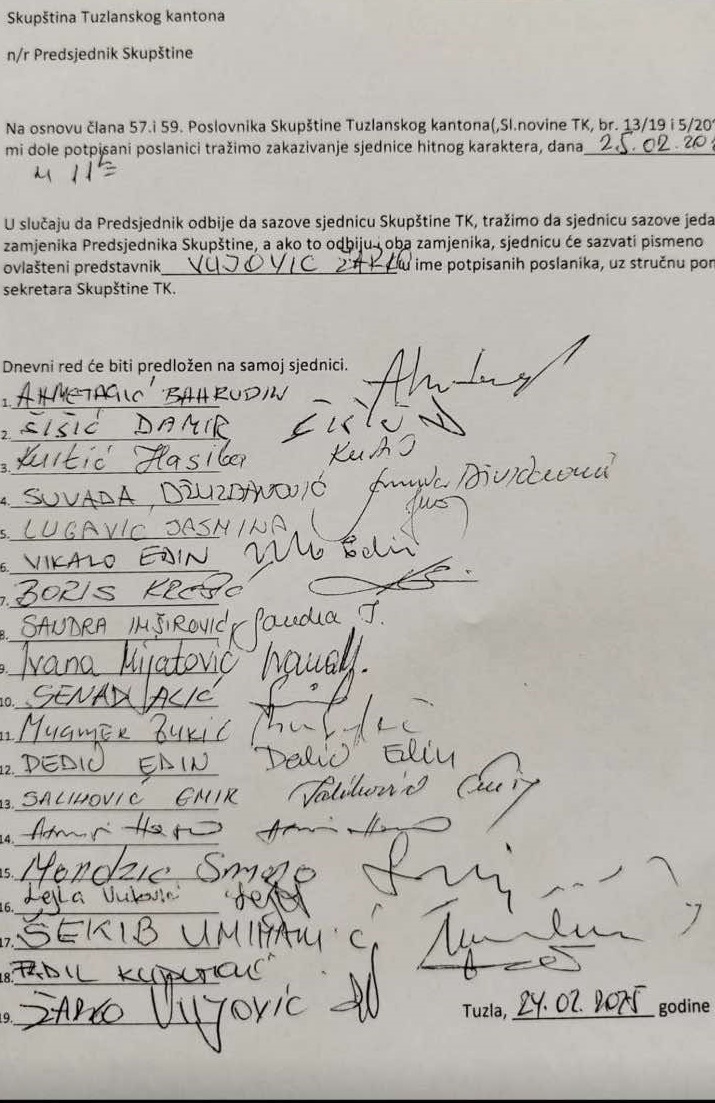 Skupština Tuzlanskog kantona
n/r Predsjednik Skupštine
Na osnovu člana 57.i 59. Poslovnika Skupštine Tuzlanskog kantona(,Sl.novine TK, br. 13/19 i 5/20
mi dole potpisani poslanici tražimo zakazivanje sjednice hitnog karaktera, dana 25.02.20
u 11
U slučaju da Predsjednik odbije da sazove sjednicu Skupštine TK, tražimo da sjednicu sazove jeda
zamjenika Predsjednika Skupštine, a ako to odbiju oba zamjenika, sjednicu će sazvati pismeno
ovlašteni predstavnik VUJOVIC ŽARKO u ime potpisanih poslanika, uz stručnu pom
sekretara Skupštine TK.
Dnevni red će biti predložen na samoj sjednici.
1. AHMETAGIĆ BAHRUDIN
2. ŠIŠIĆ DAMIR
3. Kurtić Hasiba
4. SUVADA DŽUZDANOVIĆ
5. LUGAVIC JASMINA
6. VIKALO EDIN
7. BORIS KREŠIĆ
8. SANDRA IMŠIROVIĆ Sandra I.
9. Ivana Mijatović
10. SENAD ALIĆ
11. Muamer Zukić
12. DEDIĆ EDIN Dedić Edin
13. SALIHOVIĆ EMIR Salihović
14.
15. Mondzic Smajo
16. Lejla Vuković
17. ŠEKIB UMIHANIĆ
18. FADIL
19. ŽARKO VUJOVIĆ
Tuzla, 24.02.2025 godine